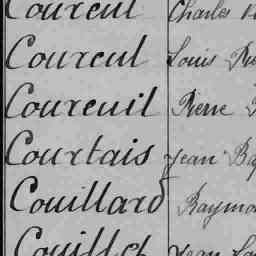 Coureul Charles
Coureul Louis
Coureuil Pierre
Courtais Jean
Couillard
Couillet Jean